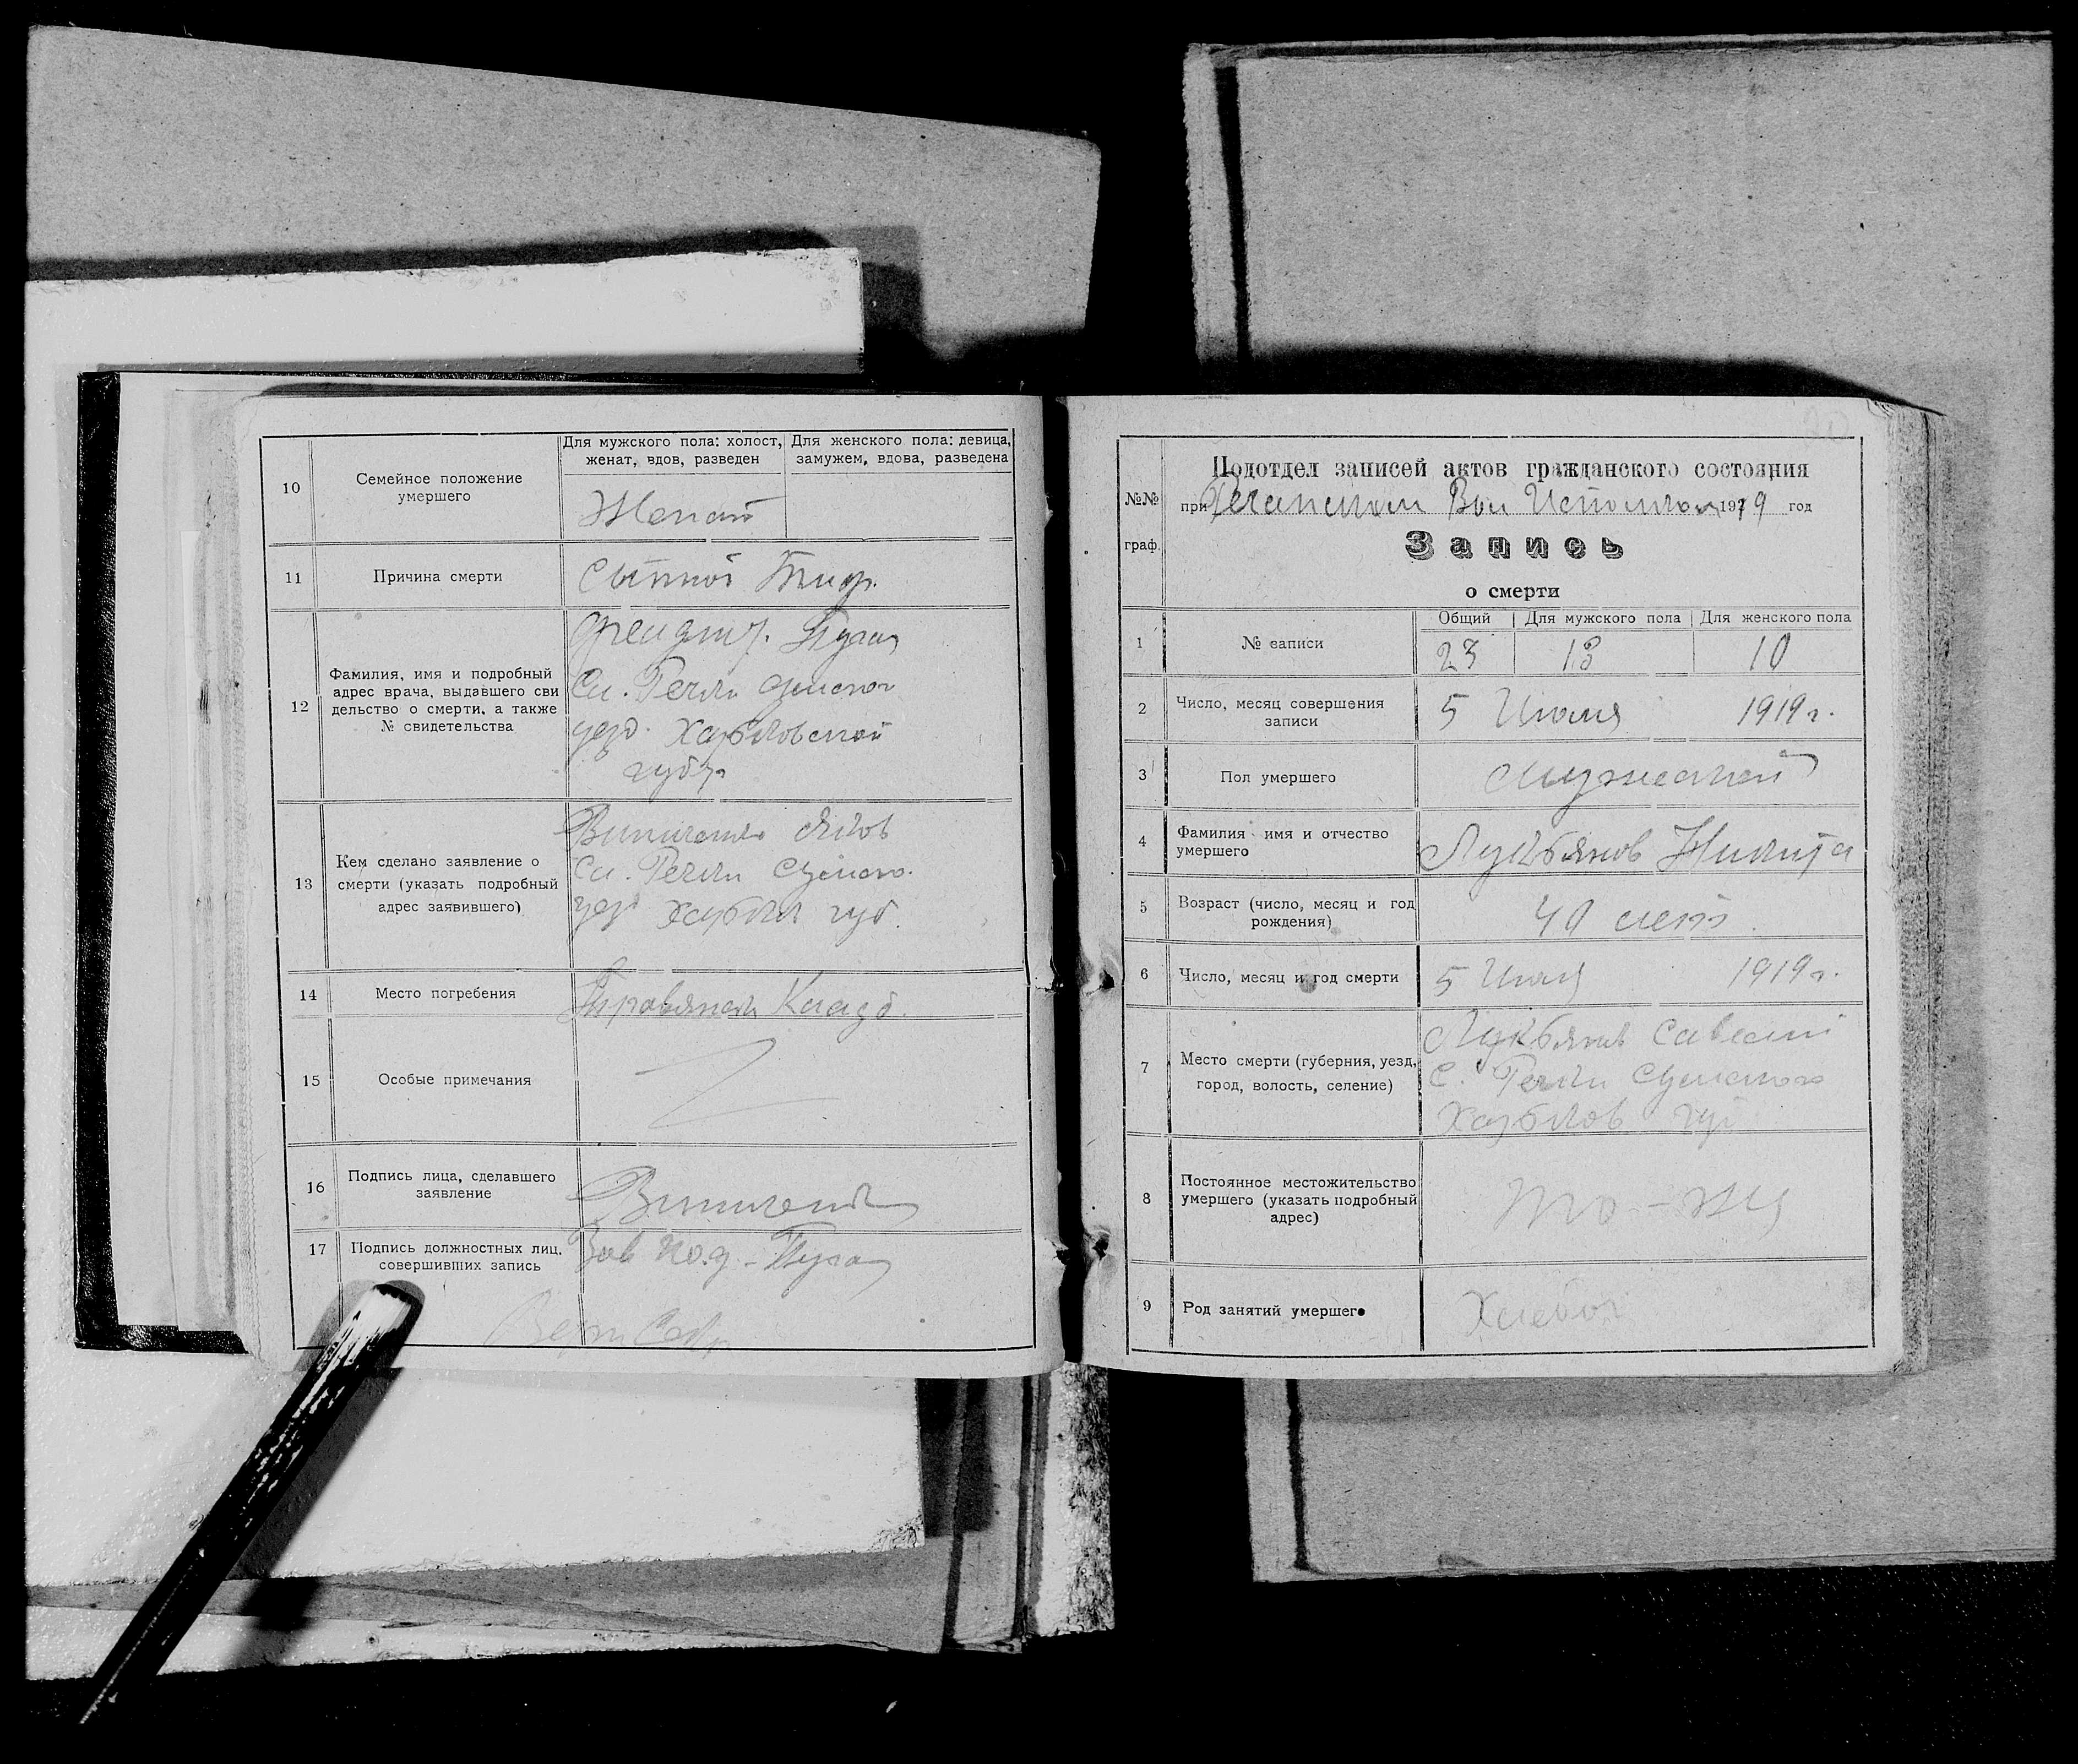 10
Семейное положение
умершего
Для мужского пола: холост,
женат, вдов, разведен
Для женского пола: девица,
замужем, вдова, разведена
Женат
11
Причина смерти
Сыпной Тиф.
12
Фамилия, имя и подробный
адрес врача, выдавшего сви
дельство о смерти, а также
№ свидетельства
Сл. Речки
уезд. Харьковской
губ
13
Кем сделано заявление о
смерти (указать подробный
адрес заявившего)
Винниченко Яков
Сл. Речки Сумско.
уез Харьк губ.
14
Место погребения
Кладб.
15
Особые примечания
16
Подпись лица, сделавшего
заявление
Винничен
17
Подпись должностных лиц,
совершивших запись
Зав под
№№
граф.
Подотдел записей актов гражданского состояния
при Речанском Вол Исполком 1919 год
Запись
о смерти
1
№ записи
Общий
Для мужского пола
Для женского пола
23
13
10
2
Число, месяц совершения
записи
5 Июля 1919 г.
3
Пол умершего
Мужской
4
Фамилия имя и отчество
умершего
Лукьянов Никита
5
Возраст (число, месяц и год
рождения)
40 лет
6
Число, месяц и год смерти
5 Июля 1919 г.
7
Место смерти (губерния, уезд,
город, волость, селение)
С. Речки Сумского
Харьков гу
8
Постоянное местожительство
умершего (указать подробный
адрес)
то-же
9
Род занятий умершего
Хлебоп